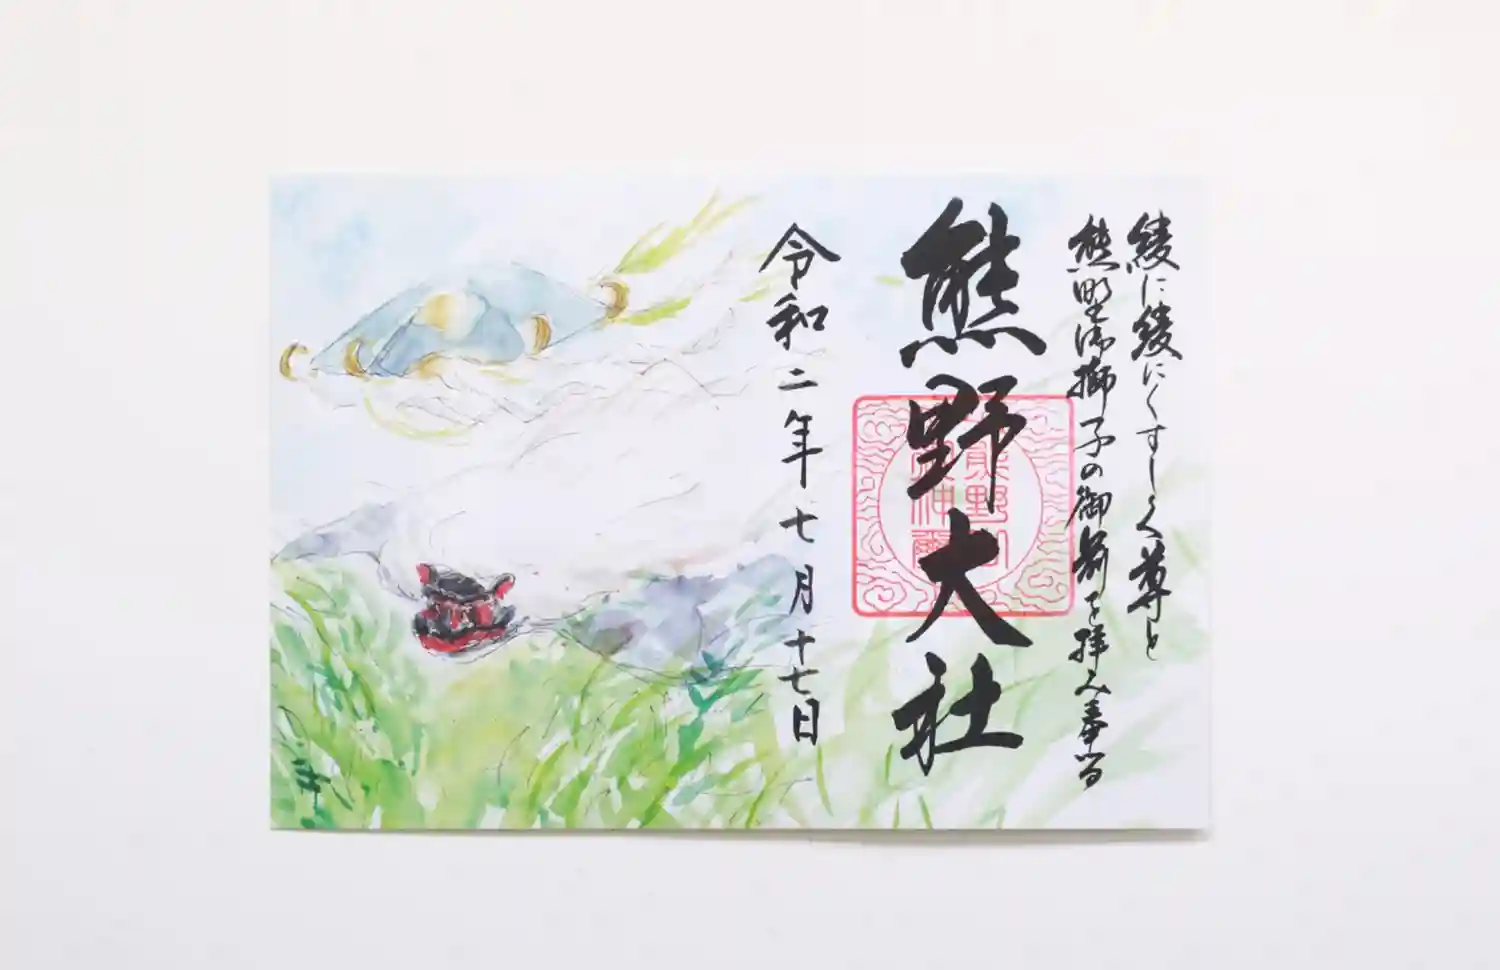 綾に綾にくすしく尊と
熊野御獅子の御前を拝み奉る
熊野大社
令和二年七月十七日